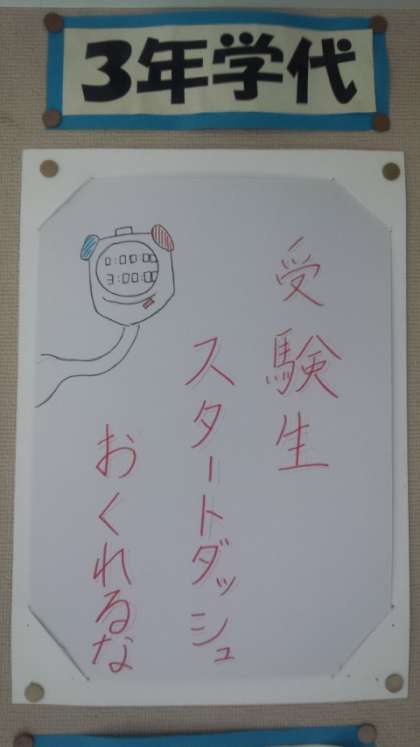 3年学代
受験生
スタートダッシュ
おくれるな
0:00:00
3:00:00